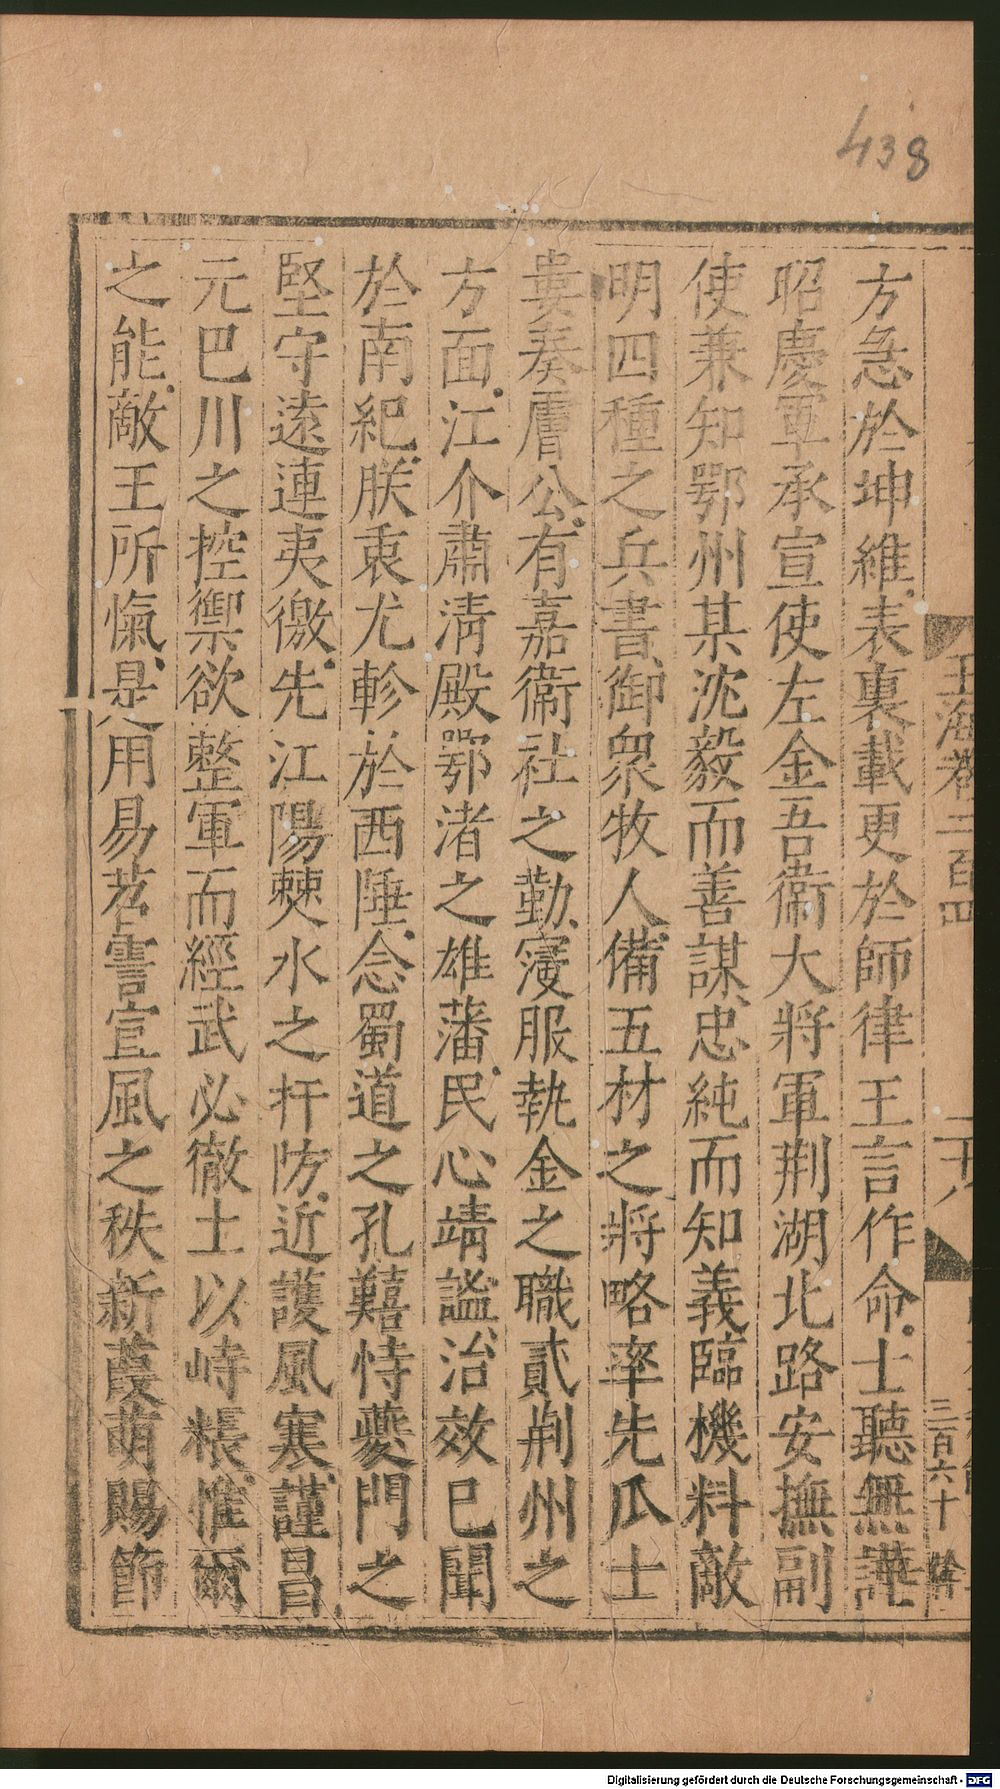 438
玉海卷二百四
二十八
三百六十
方急於坤維表裏載更於師律王言作命士聽無譁
昭慶軍承宣使左金吾衞大將軍荆湖北路安撫副
使兼知鄂州某沈毅而善謀忠純而知義臨機料敵
明四種之兵書御衆牧人備五材之將略率先瓜士
婁奏膚公有嘉衞社之勤寖服執金之職貳荆州之
方面江介肅清殿鄂渚之雄藩民心靖謐治效已聞
於南紀朕衷尤軫於西陲念蜀道之孔囏恃夔門之
堅守遠連夷徼先江陽僰水之扞防近護風寒謹昌
元巴川之控禦欲整軍而經武必徹土以峙粻惟爾
之能敵王所愾是用易苕霅宣風之秩新葭萌賜節
Digitalisierung gefördert durch die Deutsche Forschungsgemeinschaft - DFG